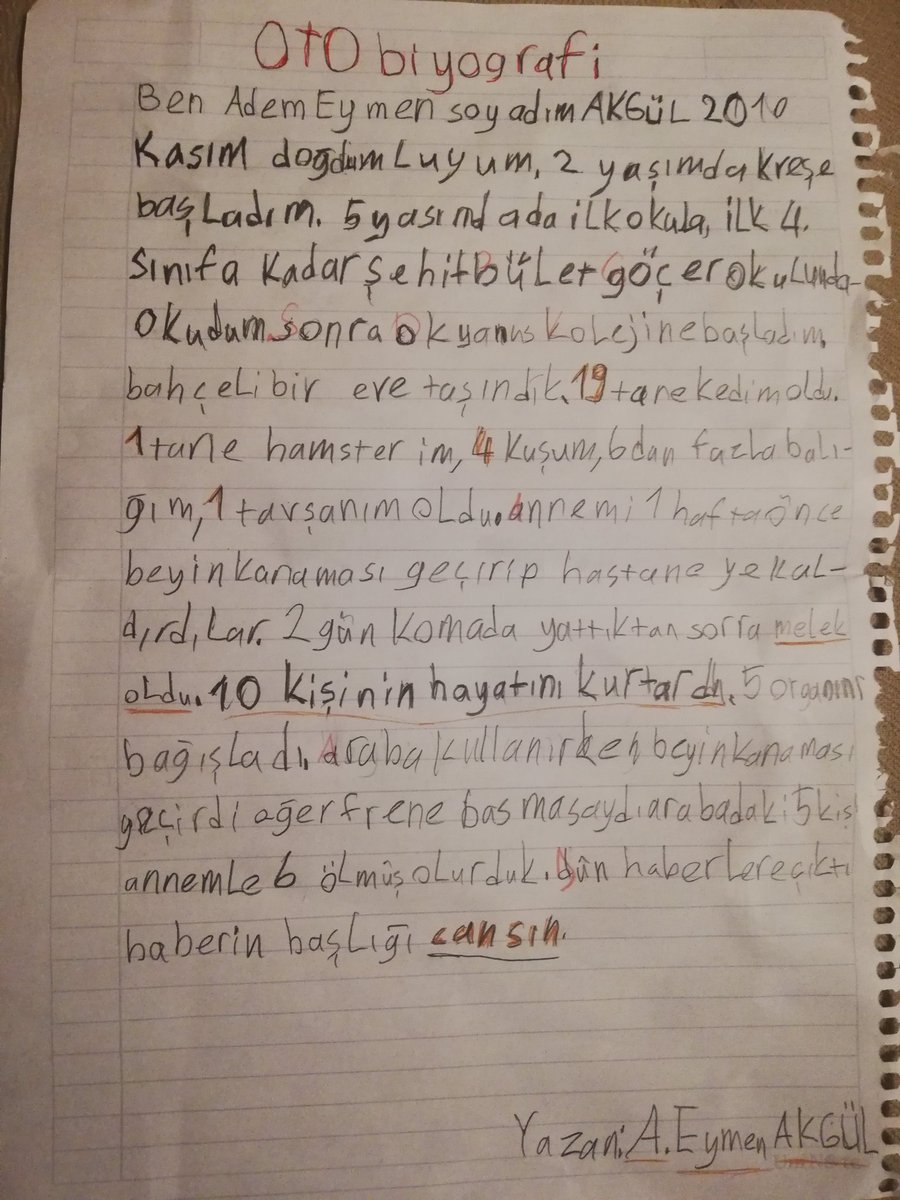 OTO biyografi
Ben Adem Eymen soyadım AKGÜL 2010
Kasım doğdumLuyum, 2 yaşımda kreşe
başLadım. 5 yasındada ilkokula, iLk 4.
Sınıfa Kadar Şehit Büler Göçer okuLunda-
Okudum. Sonra Okyanus Kolejine başLadım.
bahçeli bir eve taşındık. 19 tane kedim oldu.
1 tane hamsterim, 4 Kuşum, 6dan fazla balı-
ğım, 1 tavşanım oldu. Annemi 1 hafta önce
beyin kanaması geçirip hastaneye kaL-
dırdıLar. 2 gün Komada yattıktan sorra melek
oldu. 10 Kişinin hayatını kurtardı. 5 organını
bağışLadı. Araba kullanırken beyin kanaması
geçirdi eğer frene basmasaydı arabadaki 5 kişi
annemLe 6 ölmüş olurduk. Dün haberLere çıktı
haberin başLığı cansın.
Yazan: A. Eymen AKGÜL